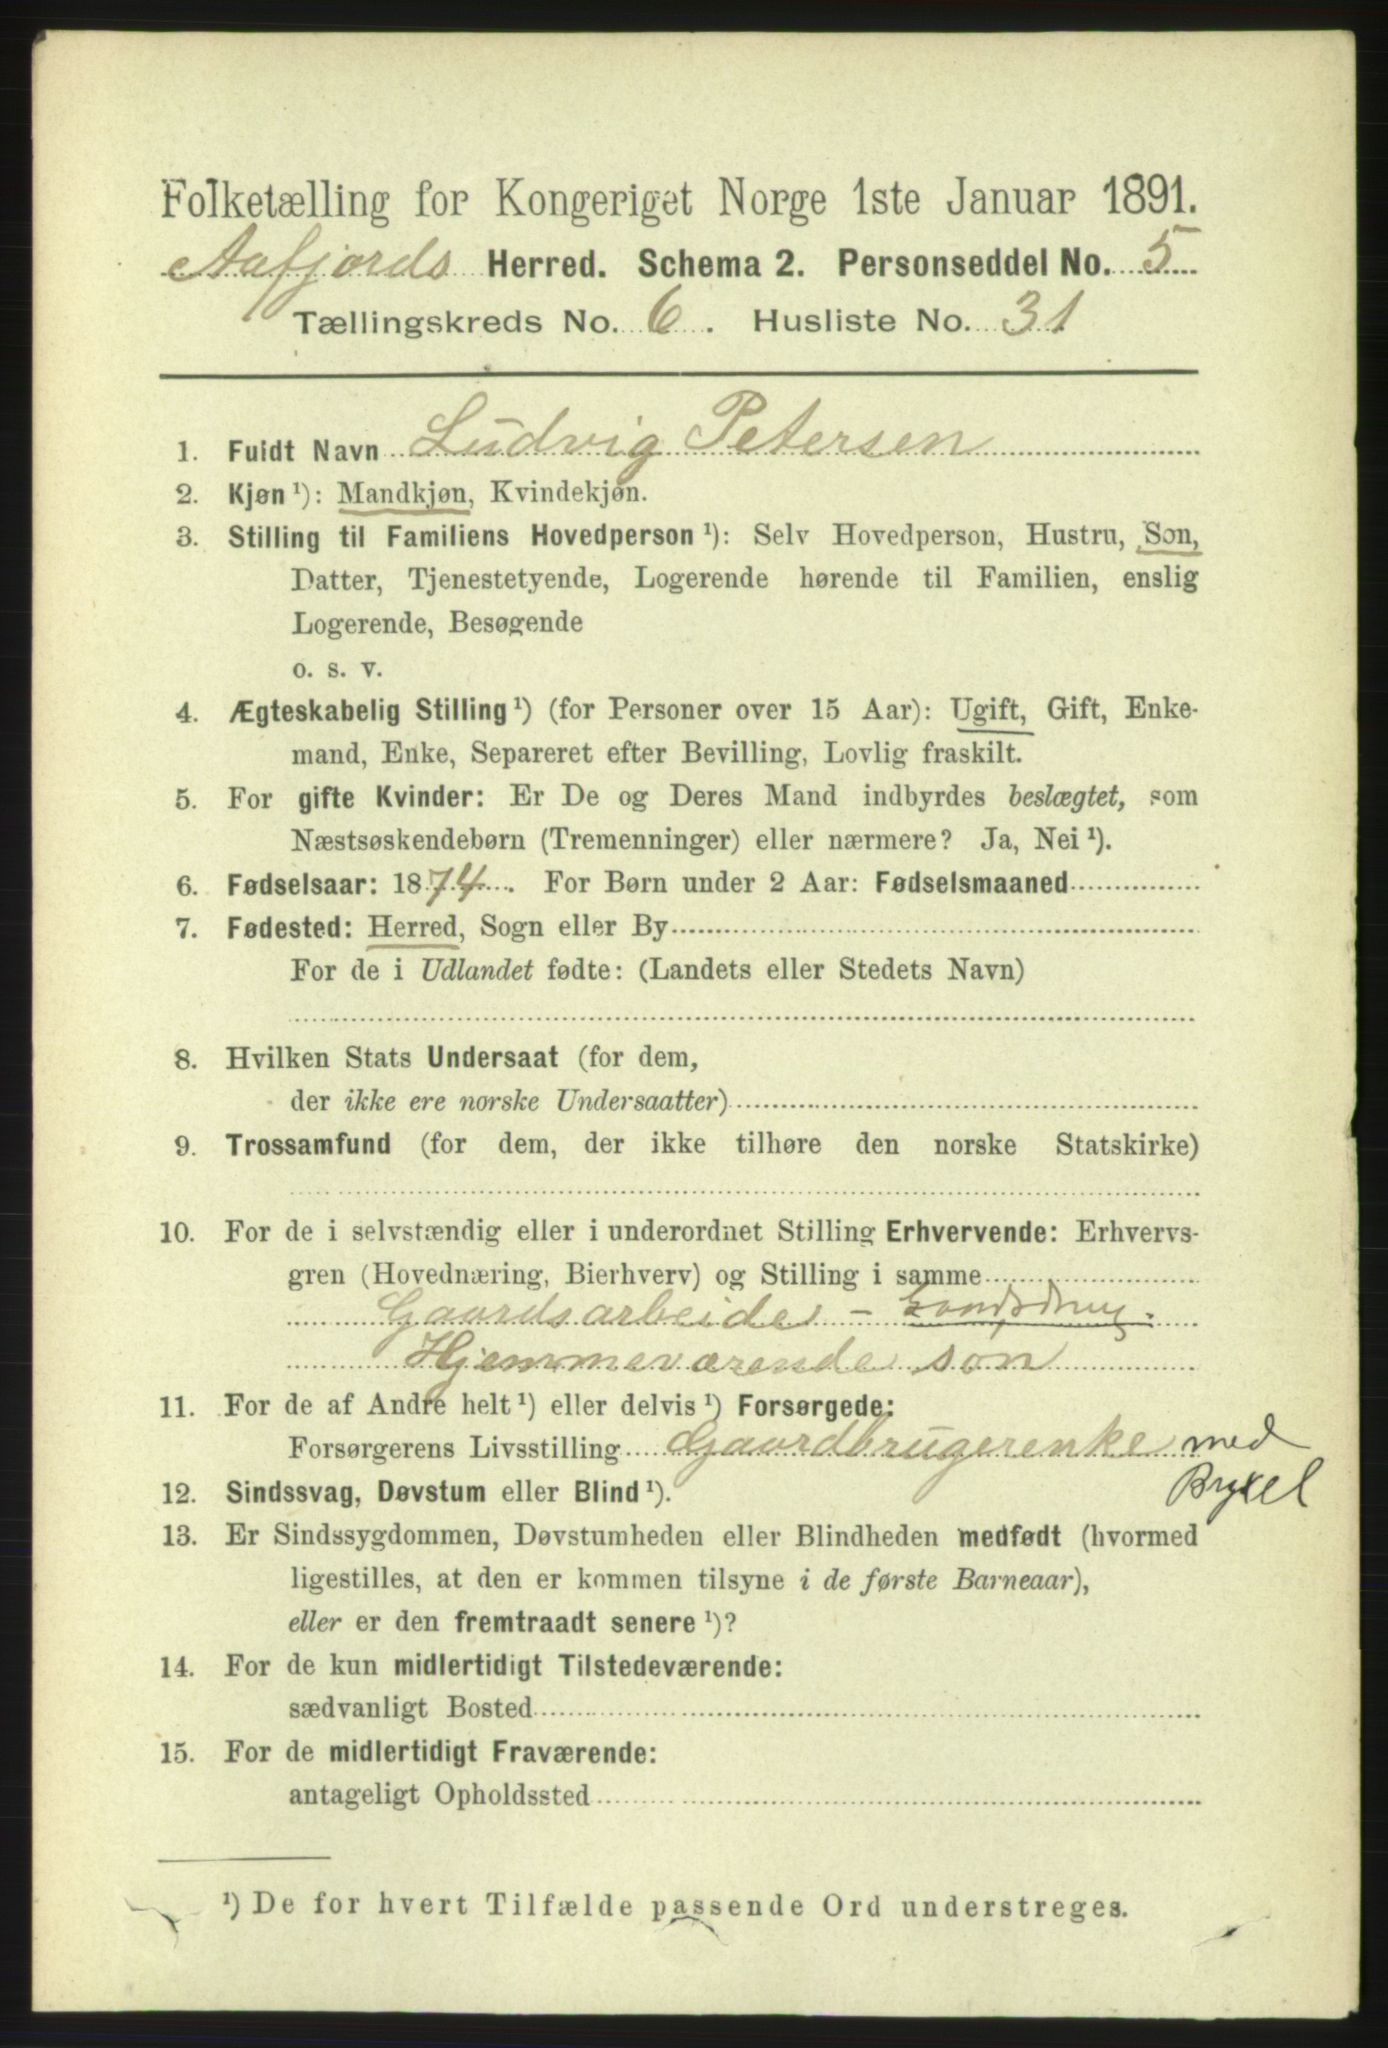 Folketælling for Kongeriget Norge 1ste Januar 1891.
Aafjords Herred. Schema 2. Personseddel No. 5
Tællingskreds No. 6. Husliste No. 31
1. Fuldt Navn Ludvig Petersen
2. Kjøn ¹): Mandkjøn, Kvindekjøn.
3. Stilling til Familiens Hovedperson ¹): Selv Hovedperson, Hustru, Søn,
Datter, Tjenestetyende, Logerende hørende til Familien, enslig
Logerende, Besøgende
o. s. v.
4. Ægteskabelig Stilling ¹) (for Personer over 15 Aar): Ugift, Gift, Enke-
mand, Enke, Separeret efter Bevilling, Lovlig fraskilt.
5. For gifte Kvinder: Er De og Deres Mand indbyrdes beslægtet, som
Næstsøskendebørn (Tremenninger) eller nærmere? Ja, Nei ¹).
6. Fødselsaar: 1874. For Børn under 2 Aar: Fødselsmaaned
7. Fødested: Herred, Sogn eller By
For de i Udlandet fødte: (Landets eller Stedets Navn)
8. Hvilken Stats Undersaat (for dem,
der ikke ere norske Undersaatter)
9. Trossamfund (for dem, der ikke tilhøre den norske Statskirke)
10. For de i selvstændig eller i underordnet Stilling Erhvervende: Erhvervs-
gren (Hovednæring, Bierhverv) og Stilling i samme
Gaardsarbeide -
Hjemmeværende søn
11. For de af Andre helt ¹) eller delvis ¹) Forsørgede:
Forsørgerens Livsstilling Gaardbrugerenke med
Bryxel
12. Sindssvag, Døvstum eller Blind ¹).
13. Er Sindssygdommen, Døvstumheden eller Blindheden medfødt (hvormed
ligestilles, at den er kommen tilsyne i de første Barneaar),
eller er den fremtraadt senere ¹)?
14. For de kun midlertidigt Tilstedeværende:
sædvanligt Bosted
15. For de midlertidigt Fraværende:
antageligt Opholdssted
¹) De for hvert Tilfælde passende Ord understreges.